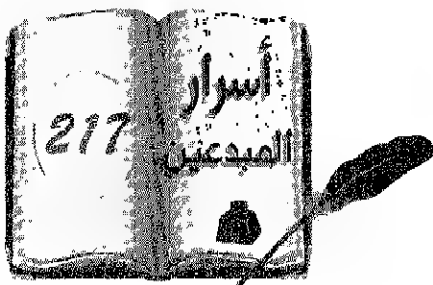 217
أسرار
المبدعين